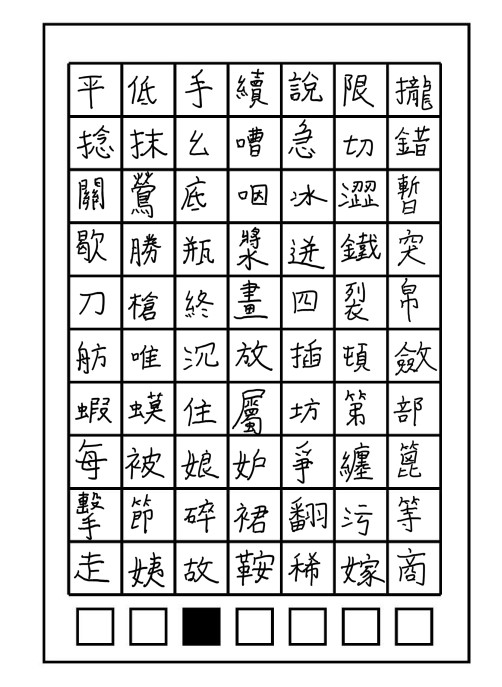 平低手續說限攏
捻抹幺嘈急切錯
關鶯底咽冰澀暫
歇勝瓶漿迸鐵突
刀槍終畫四裂帛
舫唯沉放插頓斂
蝦蟆住屬坊第部
每被娘妒爭纏篦
擊節碎裙翻污等
走姨故鞍稀嫁商